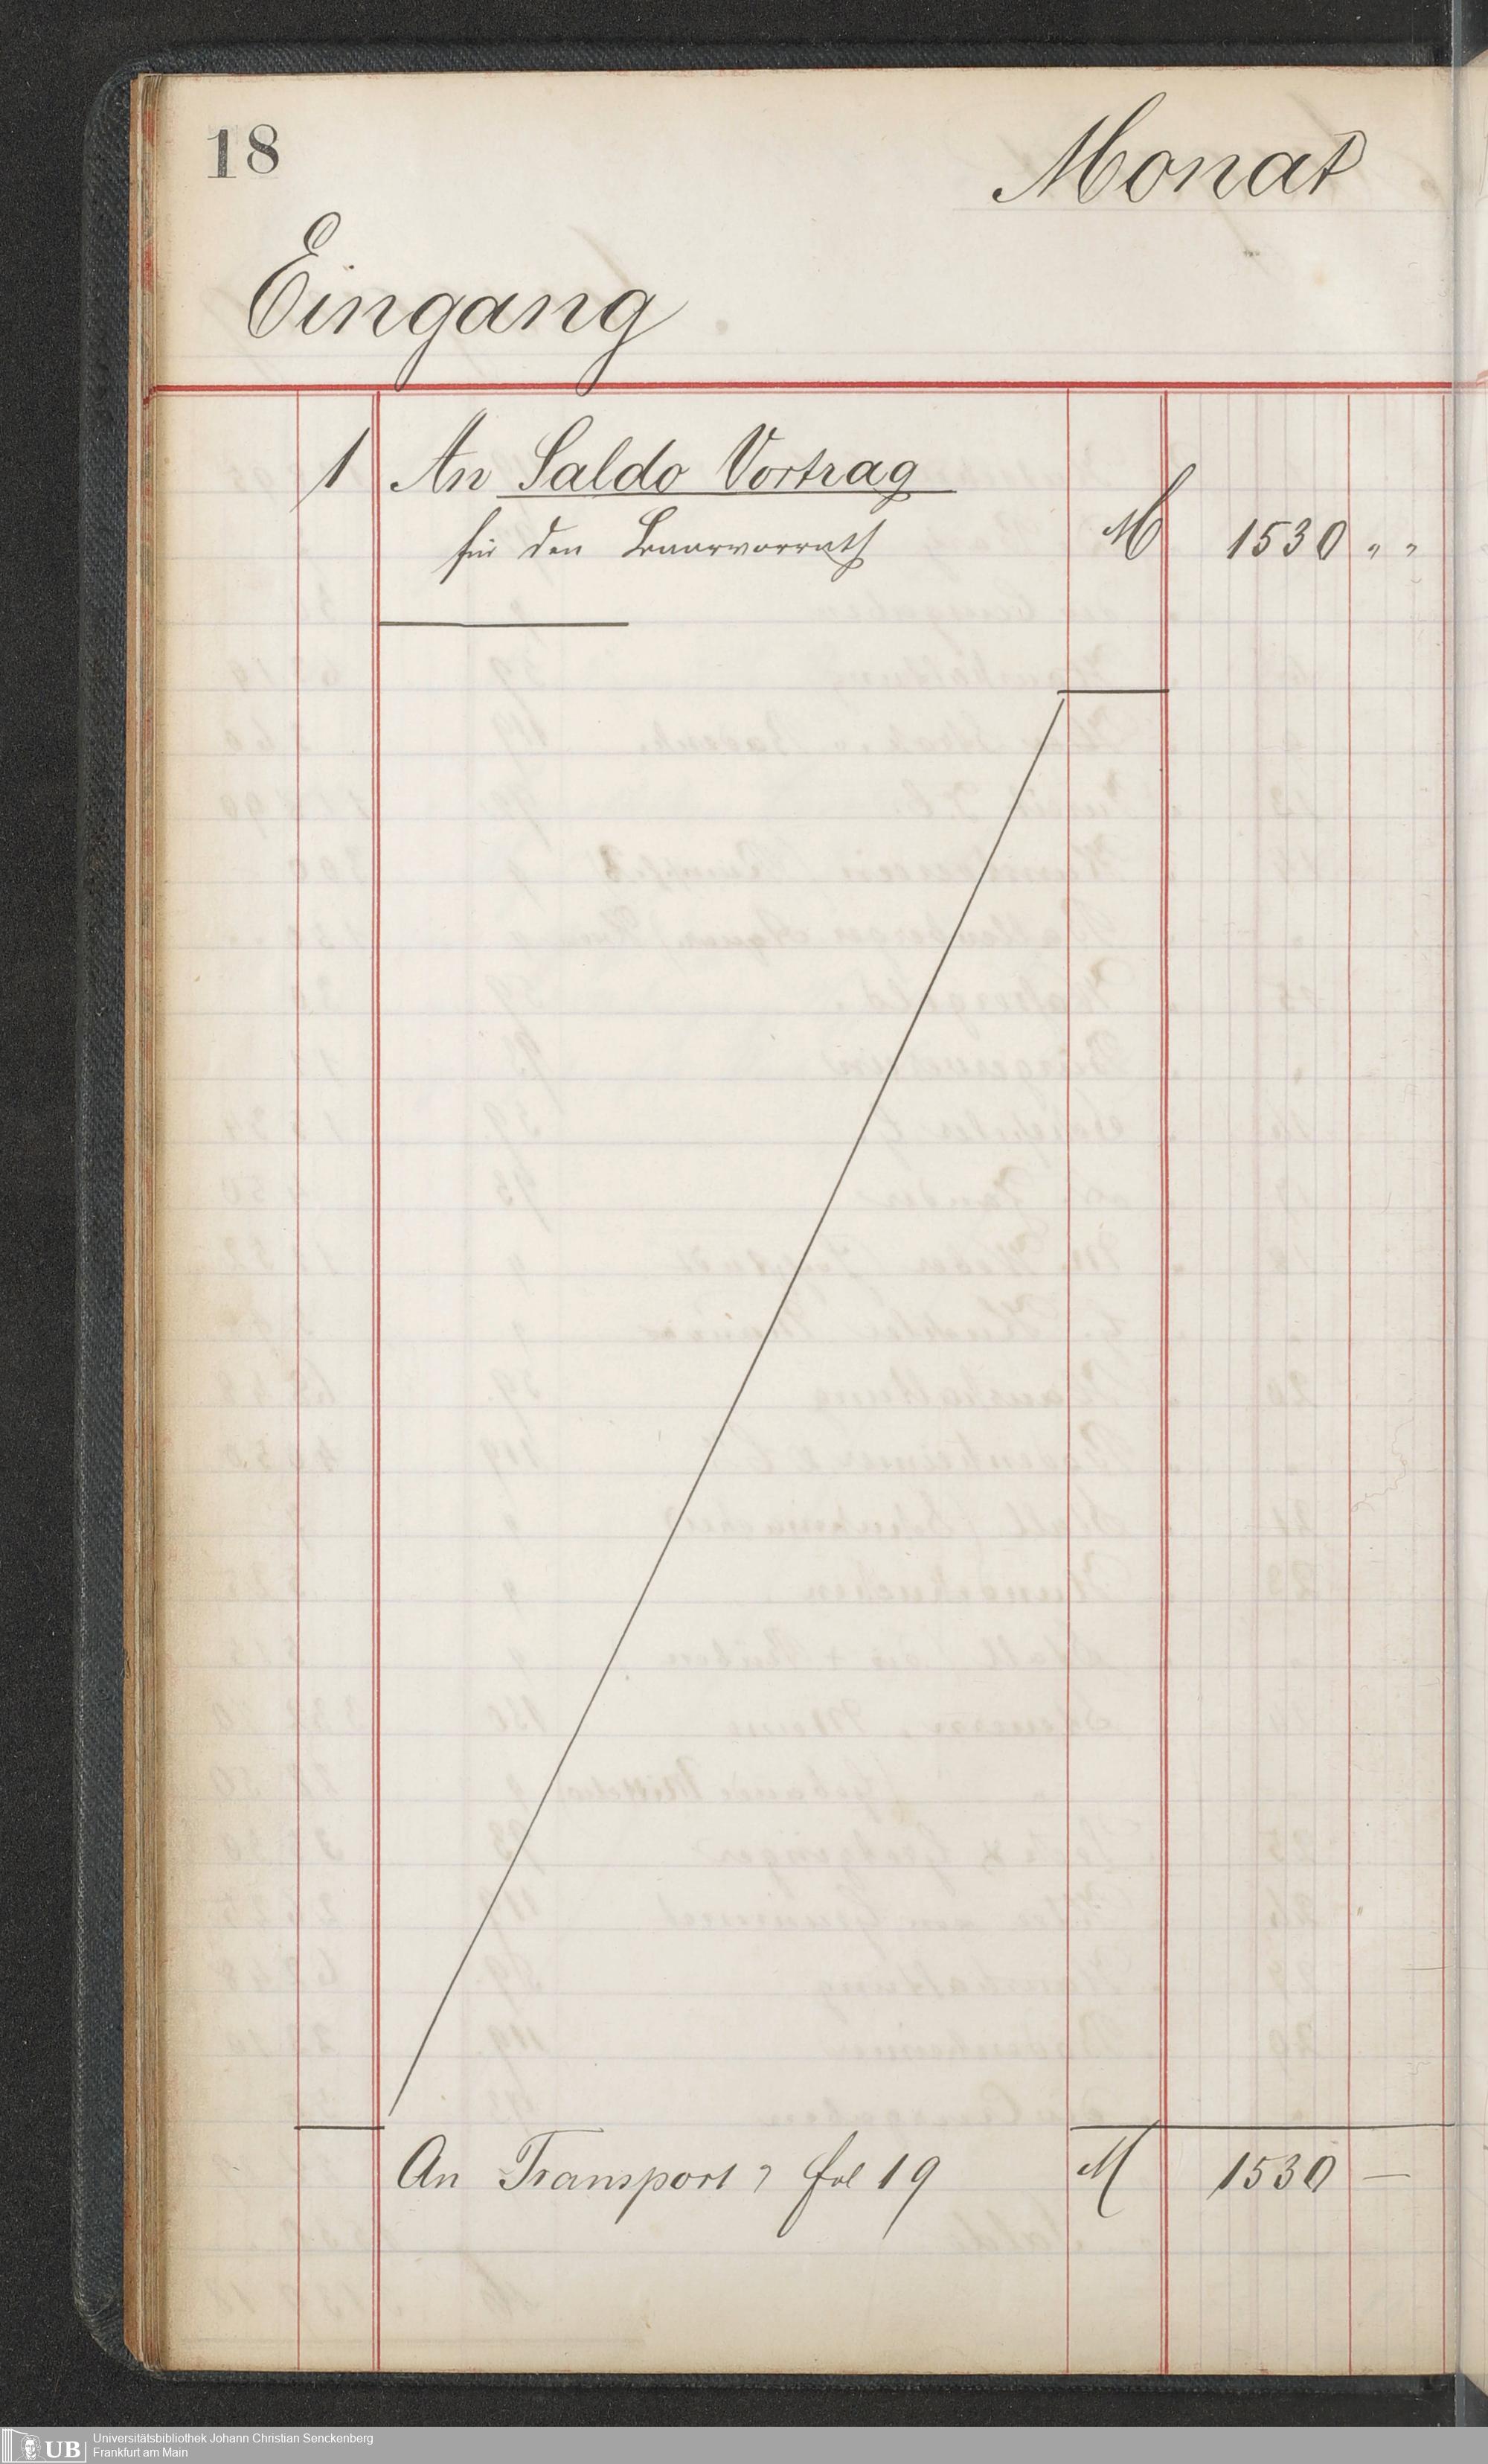 18
Monat
Eingang
1 An Saldo Vortrag
für den Baarvorrath M 1530 " "
An Transport fol 19 M 1530 —
UB Universitätsbibliothek Johann Christian Senckenberg
Frankfurt am Main